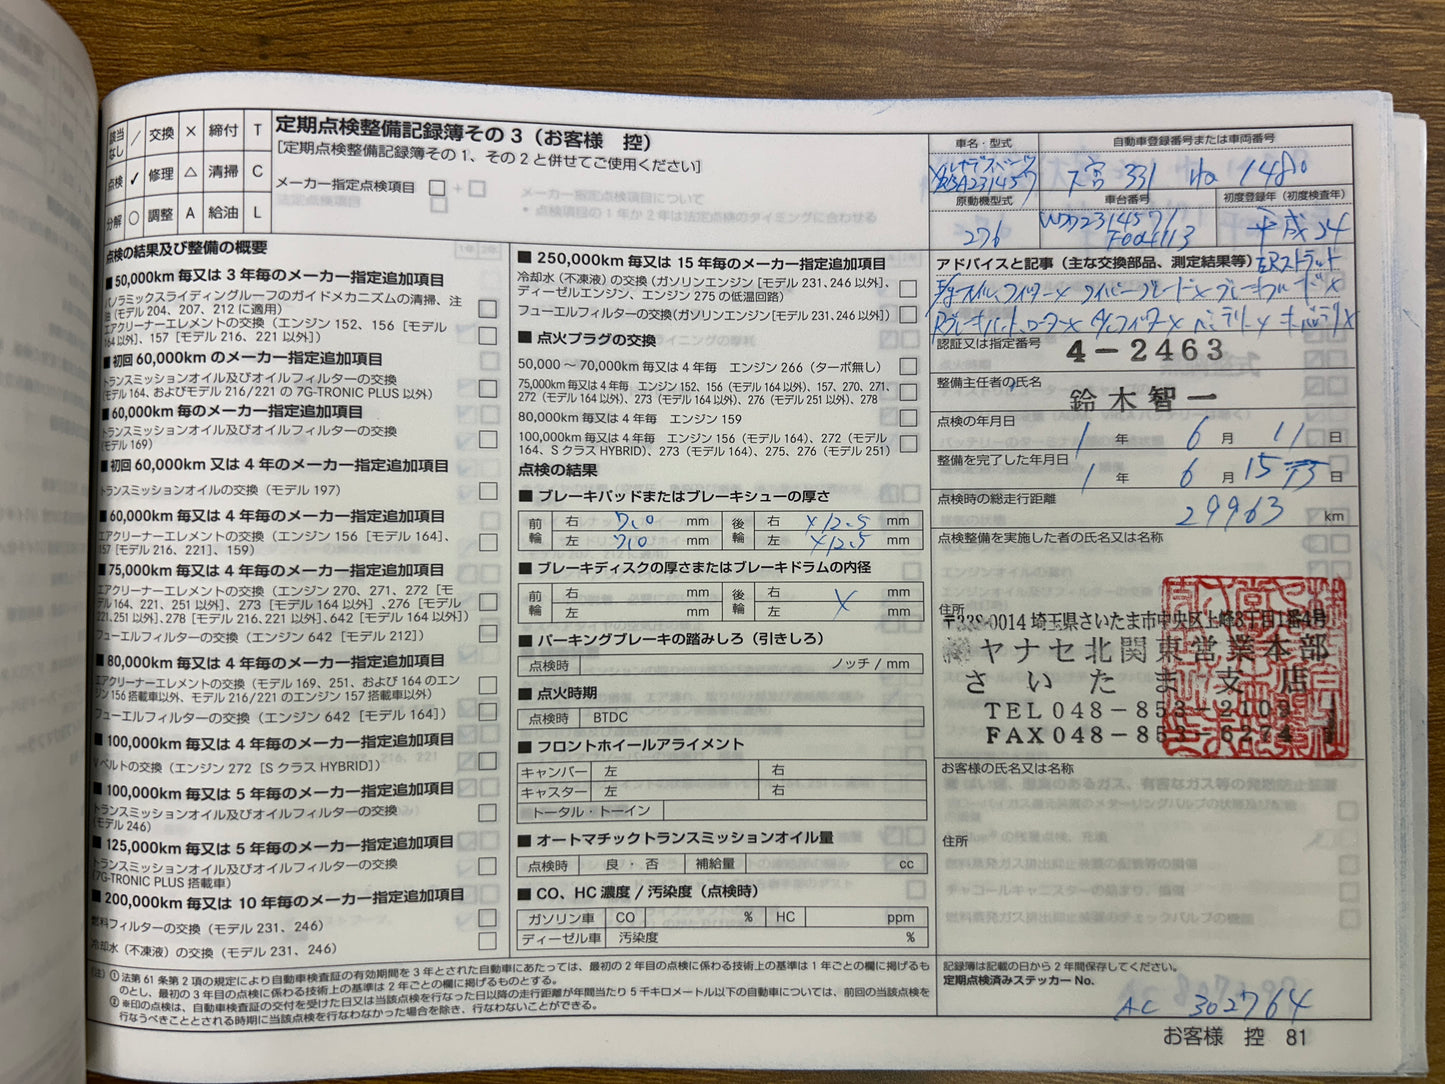 該当なし / 交換 × 締付 T
点検 ✓ 修理 △ 清掃 C
分解 ○ 調整 A 給油 L
定期点検整備記録簿その3（お客様　控）
［定期点検整備記録簿その1、その2と併せてご使用ください］
メーカー指定点検項目 □ + □
点検の結果及び整備の概要
■ 50,000km 毎又は 3 年毎のメーカー指定追加項目
パノラミックスライディングルーフのガイドメカニズムの清掃、注
油（モデル 204、207、212 に適用）
エアクリーナーエレメントの交換（エンジン 152、156［モデル
164 以外］、157［モデル 216、221 以外］）
■ 初回 60,000km のメーカー指定追加項目
トランスミッションオイル及びオイルフィルターの交換
（モデル 164、およびモデル 216/221 の 7G-TRONIC PLUS 以外）
■ 60,000km 毎のメーカー指定追加項目
トランスミッションオイル及びオイルフィルターの交換
（モデル 169）
■ 初回 60,000km 又は 4 年毎のメーカー指定追加項目
トランスミッションオイルの交換（モデル 197）
■ 60,000km 毎又は 4 年毎のメーカー指定追加項目
エアクリーナーエレメントの交換（エンジン 156［モデル 164］、
157［モデル 216、221］、159）
■ 75,000km 毎又は 4 年毎のメーカー指定追加項目
エアクリーナーエレメントの交換（エンジン 270、271、272［モ
デル 164、221、251 以外］、273［モデル 164 以外］、276［モデル
221、251 以外］、278［モデル 216、221 以外］、642［モデル 164 以外］）
フューエルフィルターの交換（エンジン 642［モデル 212］）
■ 80,000km 毎又は 4 年毎のメーカー指定追加項目
エアクリーナーエレメントの交換（モデル 169、251、および 164 のエン
ジン 156 搭載車以外、モデル 216/221 のエンジン 157 搭載車以外）
フューエルフィルターの交換（エンジン 642［モデル 164］）
■ 100,000km 毎又は 4 年毎のメーカー指定追加項目
V ベルトの交換（エンジン 272［S クラス HYBRID］）
■ 100,000km 毎又は 5 年毎のメーカー指定追加項目
トランスミッションオイル及びオイルフィルターの交換
（モデル 246）
■ 125,000km 毎又は 5 年毎のメーカー指定追加項目
トランスミッションオイル及びオイルフィルターの交換
（7G-TRONIC PLUS 搭載車）
■ 200,000km 毎又は 10 年毎のメーカー指定追加項目
燃料フィルターの交換（モデル 231、246）
冷却水（不凍液）の交換（モデル 231、246）
■ 250,000km 毎又は 15 年毎のメーカー指定追加項目
冷却水（不凍液）の交換（ガソリンエンジン［モデル 231、246 以外］、
ディーゼルエンジン、エンジン 275 の低温回路）
フューエルフィルターの交換（ガソリンエンジン［モデル 231、246 以外］）
■ 点火プラグの交換
50,000 ～ 70,000km 毎又は 4 年毎　エンジン 266（ターボ無し）
75,000km 毎又は 4 年毎　エンジン 152、156（モデル 164 以外）、157、270、271、
272（モデル 164 以外）、273（モデル 164 以外）、276（モデル 251 以外）、278
80,000km 毎又は 4 年毎　エンジン 159
100,000km 毎又は 4 年毎　エンジン 156（モデル 164）、272（モデル
164、S クラス HYBRID）、273（モデル 164）、275、276（モデル 251）
点検の結果
■ ブレーキパッドまたはブレーキシューの厚さ
前輪 右 7.0 mm 後輪 右 ×12.5 mm
左 7.0 mm 左 ×12.5 mm
■ ブレーキディスクの厚さまたはブレーキドラムの内径
前輪 右 mm 後輪 右 × mm
左 mm 左 mm
■ パーキングブレーキの踏みしろ（引きしろ）
点検時 ノッチ / mm
■ 点火時期
点検時 BTDC
■ フロントホイールアライメント
キャンバー 左 右
キャスター 左 右
トータル・トーイン
■ オートマチックトランスミッションオイル量
点検時 良・否 補給量 cc
■ CO、HC 濃度 / 汚染度（点検時）
ガソリン車 CO % HC ppm
ディーゼル車 汚染度 %
（注）① 法第 61 条第 2 項の規定により自動車検査証の有効期間を 3 年とされた自動車にあたっては、最初の 2 年目の点検に係わる技術上の基準は 1 年ごとの欄に掲げるも
のとし、最初の 3 年目の点検に係わる技術上の基準は 2 年ごとの欄に掲げるものとする。
② ※印の点検は、自動車検査証の交付を受けた日又は当該点検を行なった日以降の走行距離が年間当たり 5 千キロメートル以下の自動車については、前回の当該点検を
行なうべきこととされる時期に当該点検を行なわなかった場合を除き、行なわないことができる。
車名・型式 自動車登録番号または車両番号
メルセデスベンツ
RBA231457 大宮 331 ね 1480
原動機型式 車台番号 初度登録年（初度検査年）
276 WDD2314571
F004113 平成 24
アドバイスと記事（主な交換部品、測定結果等）
E/gオイル、フィルター× ワイパーブレード× ブレーキフルード×
Rブレーキパット、ローター× A/Cフィルター× バッテリー×
認証又は指定番号 4-2463
整備主任者の氏名 鈴木智一
点検の年月日 1 年 6 月 11 日
整備を完了した年月日 1 年 6 月 15 日
点検時の総走行距離 29963 km
点検整備を実施した者の氏名又は名称
住所
〒338-0014 埼玉県さいたま市中央区上峰3丁目1番4号
ヤナセ北関東営業本部
さいたま支店
TEL 048-853-2109
FAX 048-853-6274
お客様の氏名又は名称
住所
記録簿は記載の日から 2 年間保存してください。
定期点検済みステッカー No.
AC 302764
お客様　控　81